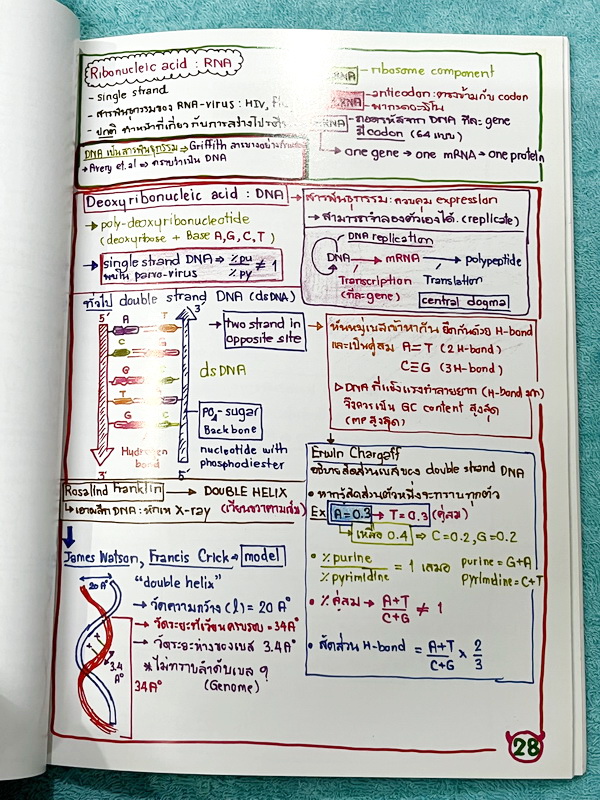 Ribonucleic acid : RNA
- single strand
- สารพันธุกรรมของ RNA-virus : HIV,
- ปกติ ทำหน้าที่เกี่ยวกับการสร้าง
RNA - ribosome component
RNA - anticodon : ตรงข้ามกับ codon
- พากรดอะมิโน
RNA - ถอดรหัสจาก DNA ทีละ gene
มี codon (64 แบบ)
→ one gene → one mRNA → one protein
DNA เป็นสารพันธุกรรม → Griffith
→ Avery et.al ⇒ ทราบว่าเป็น DNA
Deoxyribonucleic acid : DNA
→ poly-deoxyribonucleotide
(deoxyribose + Base A, G, C, T)
→ single strand DNA ⇒ %pu / %py ≠ 1
พบใน parvo-virus
สารพันธุกรรม : ควบคุม expression
→ สามารถจำลองตัวเองได้. (replicate)
DNA replication
DNA → mRNA → polypeptide
Transcription Translation
(ทีละ gene) central dogma
ทั่วไป double strand DNA (dsDNA)
5' 3'
A T
C G
G C
T A
G C
Hydrogen bond
3' 5'
→ two strand in opposite site
dsDNA
PO4-sugar Backbone
nucleotide with phosphodiester
หันหมู่เบสเข้าหากัน ยึดกันด้วย H-bond
และเป็นคู่สม A=T (2H-bond)
C≡G (3H-bond)
▷ DNA ที่แข็งแรงทำลายยาก (H-bond มาก)
จึงควรเป็น GC content สูงสุด
(MP สูงสุด)
Rosalind Franklin → DOUBLE HELIX
↳ เอาผลึก DNA : หักเห X-ray (เวียนขวาตามเข็ม)
James Watson, Francis Crick → model
"double helix"
20 A°
3.4 A°
34A°
→ วัดความกว้าง (l) = 20 A°
→ วัดระยะที่เวียนครบรอบ = 34A°
→ วัดระยะห่างของเบส 3.4A°
* ไม่ทราบลำดับเบส ?
(Genome)
Erwin Chargaff
อธิบายสัดส่วนเบสของ double strand DNA
• หากรู้สัดส่วนตัวหนึ่งจะทราบทุกตัว
Ex A = 0.3 → T = 0.3 (คู่สม)
↳ เหลือ 0.4 → C = 0.2, G = 0.2
• %purine / %pyrimidine = 1 เสมอ purine = G+A
pyrimidine = C+T
• % คู่สม → A+T / C+G ≠ 1
• สัดส่วน H-bond = A+T / C+G × 2/3
28